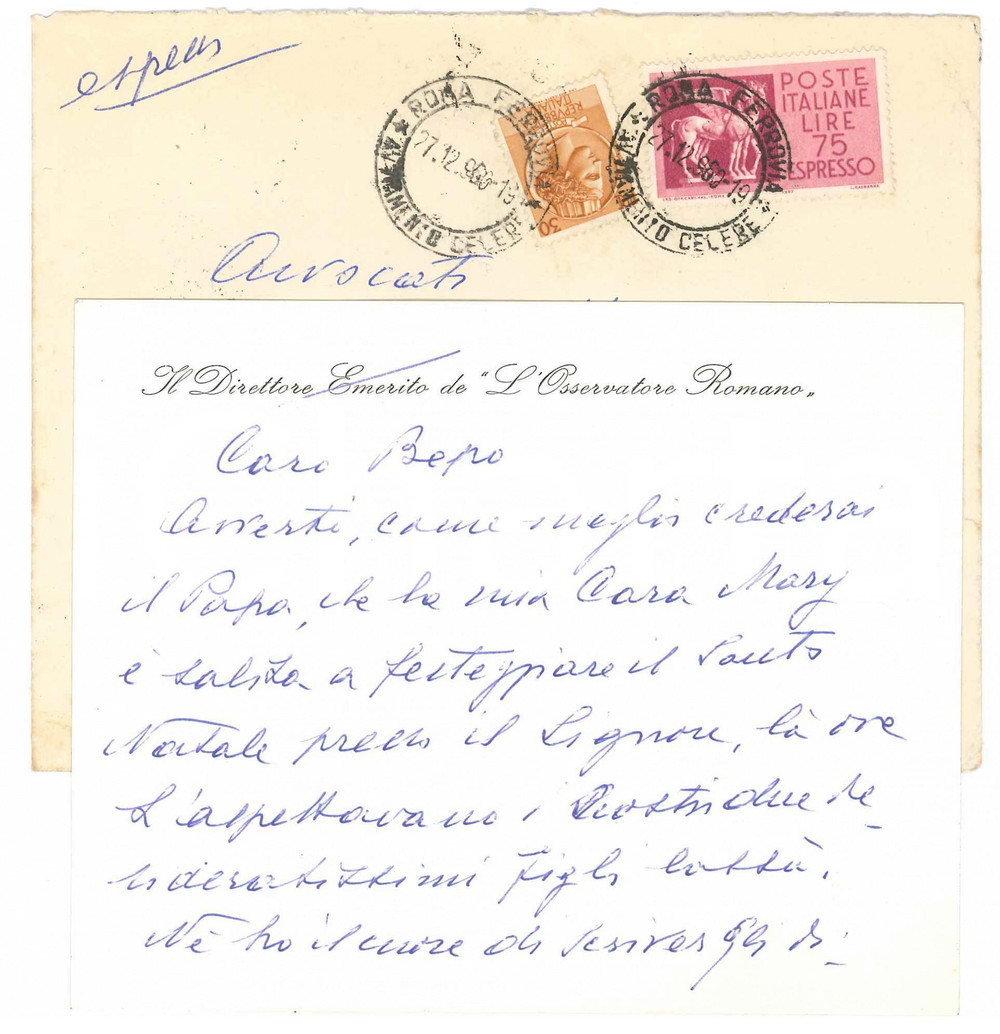 espresso
ROMA FERROVIA
27.12.968-19
AVVIAMENTO CELERE
REPUBBLICA
ITALIANA
30
ROMA FERROVIA
27.12.968-19
AVVIAMENTO CELERE
POSTE
ITALIANE
LIRE
75
ESPRESSO
Avvocato
Il Direttore Emerito de "L'Osservatore Romano„
Caro Bepo
Avverti, come meglio crederai
il Papa, che la mia Cara Mary
è salita a festeggiare il Santo
Natale presso il Signore, là ove
L'aspettavano i nostri due de_
sideratissimi figli lassù.
Nè ho il cuore di scriverGli di_